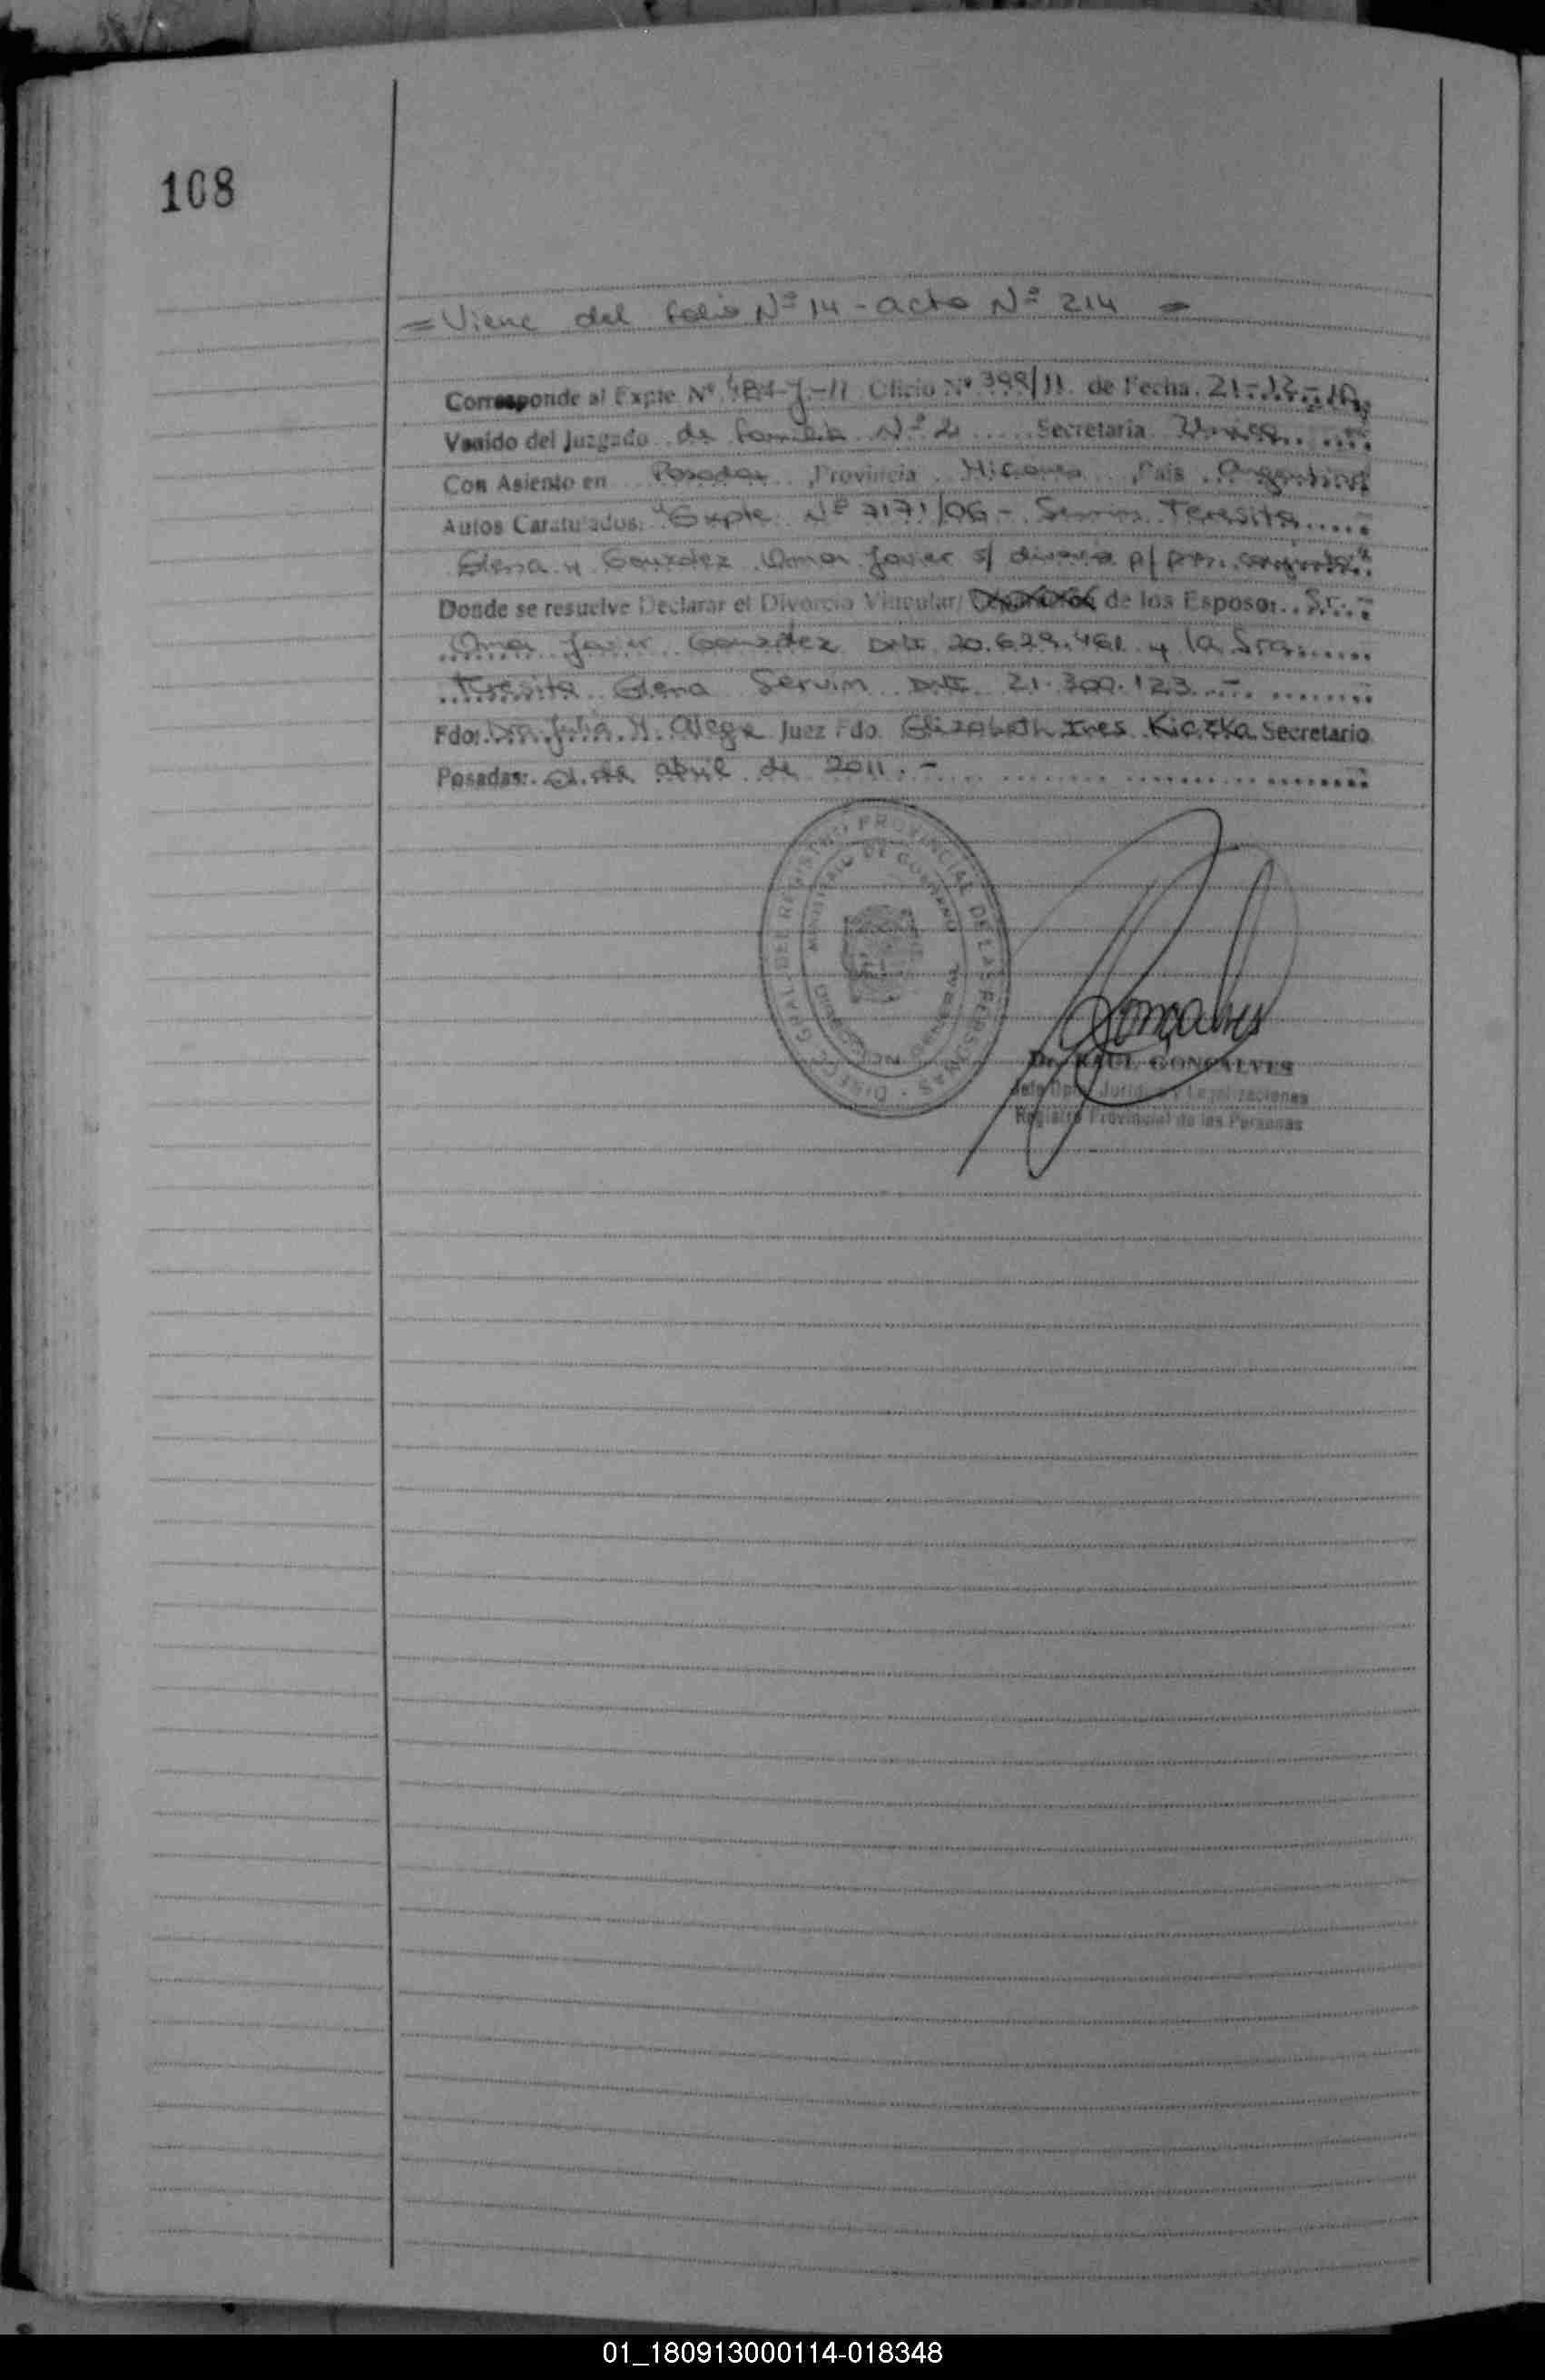 108
= Viene del folio Nº 14 - acta Nº 214 =
Corresponde al Expte Nº 487-J-11 Oficio Nº 399/11 de Fecha 21-12-10,
Venido del Juzgado de familia Nº 2 Secretaria Unica
Con Asiento en Posadas, Provincia Misiones, País Argentina
Autos Caratulados: "Expte Nº 7171/06 - Servin Teresita
Elena y Gonzalez Omar Javier s/ divorcio p/ pres. conjunta"
Donde se resuelve Declarar el Divorcio Vincular/ de los Esposos Sr.
Omar Javier Gonzalez DNI 20.629.461 y la Sra
Teresita Elena Servin DNI 21.300.123.-
Fdo: Dra Julia M. Alegre Juez Fdo. Elizabeth Ines Kiczka Secretario
Posadas: 01 de abril de 2011.-
DIREC. GRAL. DEL REGISTRO PROVINCIAL DE LAS PERSONAS
MINISTERIO DE GOBIERNO
Gonçalves
Dr. RAUL GONÇALVES
Jefe Dpto. Jurídico y Legalizaciones
Registro Provincial de las Personas
01_180913000114-018348